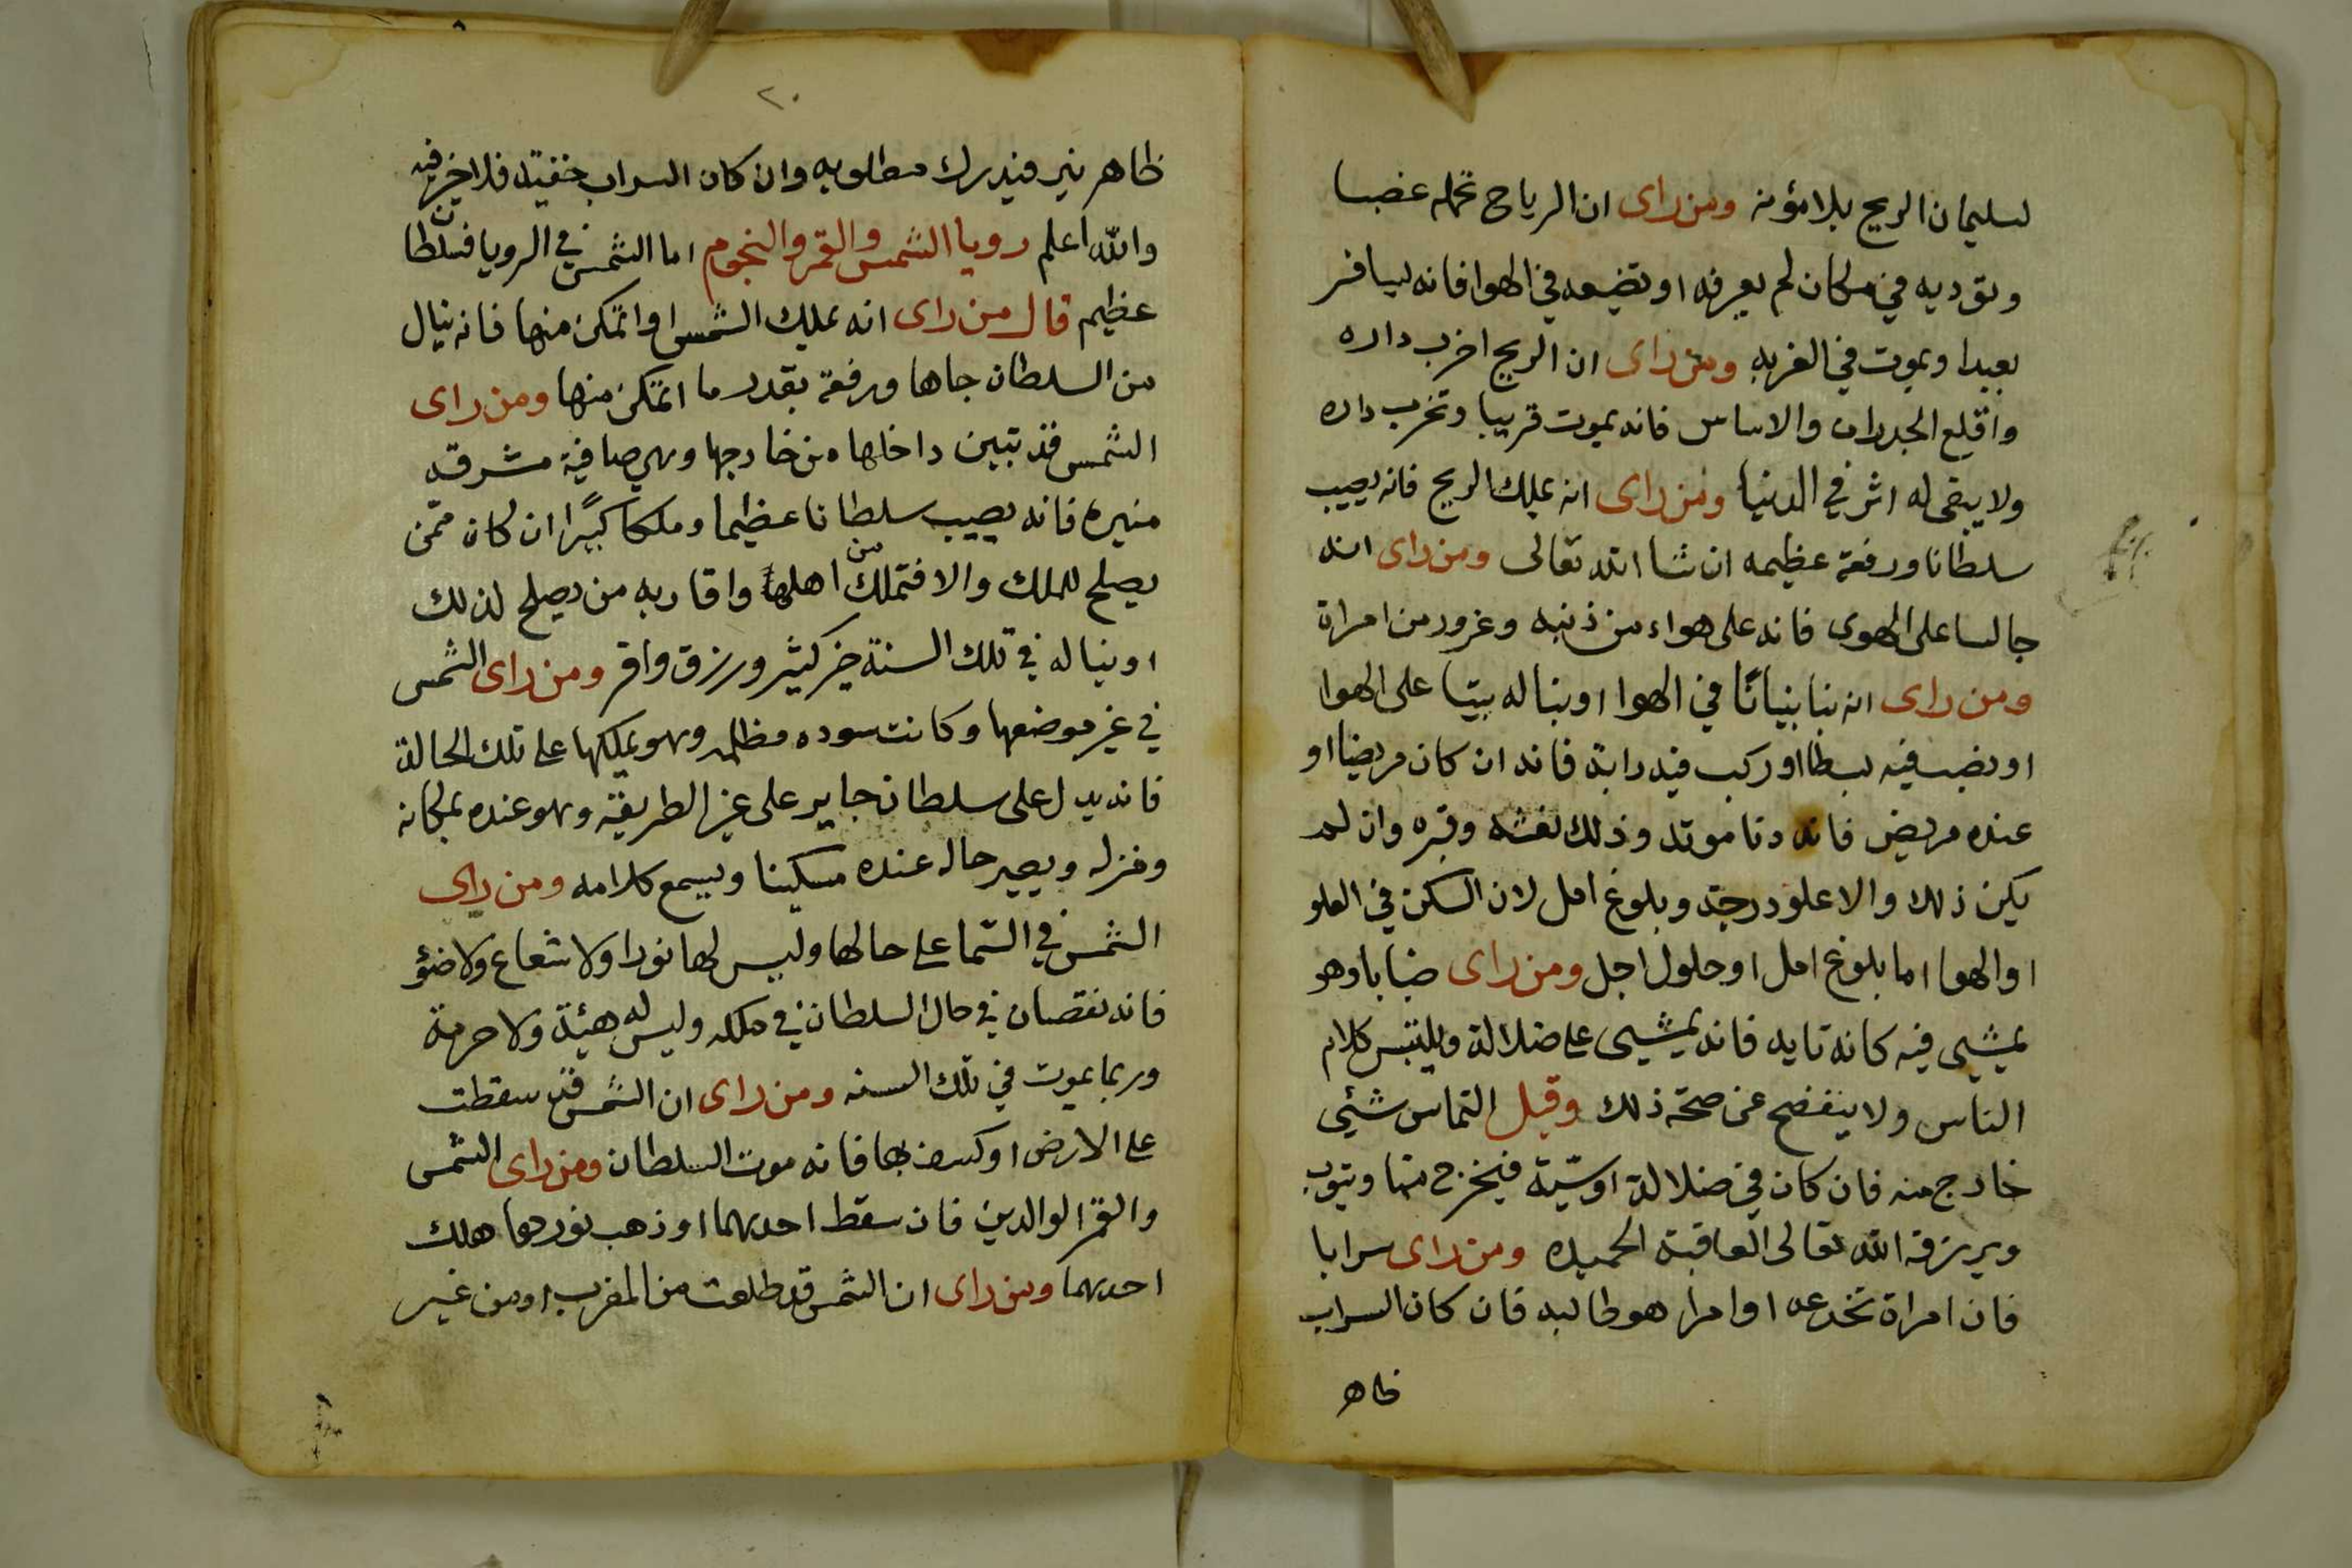 لسليمان الريح بلا مؤنه ومن راى ان الرياح تحمله غضبا
وتوديه في مكان لم يعرفه او تضيعه في الهوا فانه يسافر
بعيدا ويموت في الغربه ومن راى ان الريح اخرب داره
واقلع الجدران والاساس فانه يموت قريبا وتخرب داره
ولا يبقى له اثر في الدنيا ومن راى انه يملك الريح فانه يصيب
سلطانا ورفعة عظيمه ان شا الله تعالى ومن راى انه
جالسا على الهوى فانه على هواء من ذنبه وغرور من امراة
ومن راى انه بنا بنيانًا في الهوا او بنا له بيتا على الهوا
او نصب فيه بسطا او ركب فيه دابة فانه ان كان مريضا او
عنده مريض فانه دنا موته وذلك نعشه وقبره وان لم
يكن ذلك والا علو درجة وبلوغ امل لان السكن في العلو
او الهوا اما بلوغ امل او حلول اجل ومن راى ضبابا وهو
يمشيى فيه كانه تايه فانه يمشيى على ضلالة ويلتبس كلام
الناس ولا يتفضح عن صحة ذلك وقيل التماس شئي
خارج منه فان كان في ضلالة او سيّة فيخرج منها ويتوب
ويرزقه الله تعالى العاقبة الحميده ومن راى سرابا
فان امراة تخدعه او امرا هو طالبه فان كان السراب
ظاهر
٢٠
ظاهر نير فيدرك مطلوبه وان كان السراب خفية فلا خير فيه
والله اعلم رويا الشمس والقمر والنجوم اما الشمس في الرويا فسلطان
عظيم قال من راى انه يملك الشمس او اتمكن منها فانه ينال
من السلطان جاها ورفعة بقدر ما اتمكن منها ومن راى
الشمس قد تبين داخلها من خارجها وهي صافية مشرقه
منيره فانه يصيب سلطانا عظيما وملكا كبيرًا ان كان ممّن
يصلح للملك والا فتملك من اهلها واقاربه من يصلح لذلك
او يناله في تلك السنة خير كثير ورزق وافر ومن راى الشمس
في غير موضعها وكانت سوده مظلمه وهو يملكها على تلك الحالة
فانه يدل على سلطان جاير على غير الطريقة وهو عنده بمكانه
ومنزله ويصير حاله عنده مسكينا ويسمع كلامه ومن راى
الشمس في السّما على حالها وليس لها نورا ولا شعاع ولا ضؤ
فانه نقصان في حال السلطان في ملكه وليس له هيئة ولا حرمة
وربما يموت في تلك السنه ومن راى ان الشمس قد سقطت
على الارض او كسف بها فانه موت السلطان ومن راى الشمس
والقمر الوالدين فان سقط احدهما او ذهب نورهما هلك
احدهما ومن راى ان الشمس قد طلعت من المغرب او من غير